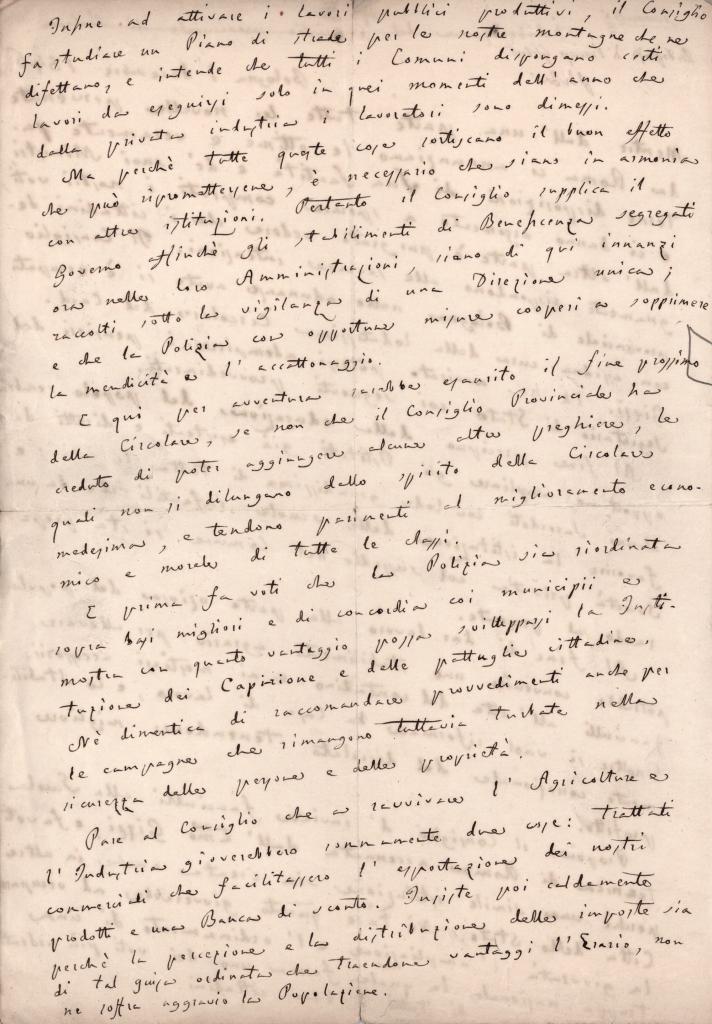 Infine ad attivare i lavori pubblici produttivi, il Consiglio
fa studiare un Piano di strade per le nostre montagne che ne
difettano, e intende che tutti i Comuni dispongano certi
lavori da eseguirsi solo in quei momenti dell'anno che
dalla privata industria i lavoratori sono dimessi.
Ma perchè tutte queste cose sortiscano il buon effetto
che può ripromettersene, è necessario che siano in armonia
con altre istituzioni. Pertanto il Consiglio supplica il
Governo affinchè gli stabilimenti di Beneficenza segregati
ora nelle loro Amministrazioni, siano di qui innanzi
raccolti sotto la vigilanza di una Direzione unica;
e che la Polizia con opportune misure cooperi a sopprimere
la mendicità e l'accattonaggio.
E qui per avventura sarebbe esaurito il fine prossimo
della Circolare, se non che il Consiglio Provinciale ha
creduto di poter aggiungere alcune altre preghiere, le
quali non si dilungano dallo spirito della Circolare
medesima, e tendono parimenti al miglioramento econo-
mico e morale di tutte le classi.
E prima fa voti che la Polizia sia riordinata
sopra basi migliori e di concordia coi municipii e
mostra con quanto vantaggio possa svilupparsi la Isti-
tuzione dei Capirione e delle pattuglie cittadine.
Nè dimentica di raccomandare provvedimenti anche per
le campagne che rimangono tuttavia turbate nella
sicurezza delle persone e delle proprietà.
Pare al Consiglio che a ravvivare l'Agricoltura e
l'Industria gioverebbero sommamente due cose: trattati
commerciali che facilitassero l'esportazione dei nostri
prodotti e una Banca di sconto. Insiste poi caldamente
perchè la percezione e la distribuzione delle imposte sia
di tal guisa ordinata che traendone vantaggi l'Erario, non
ne soffra aggravio la Popolazione.